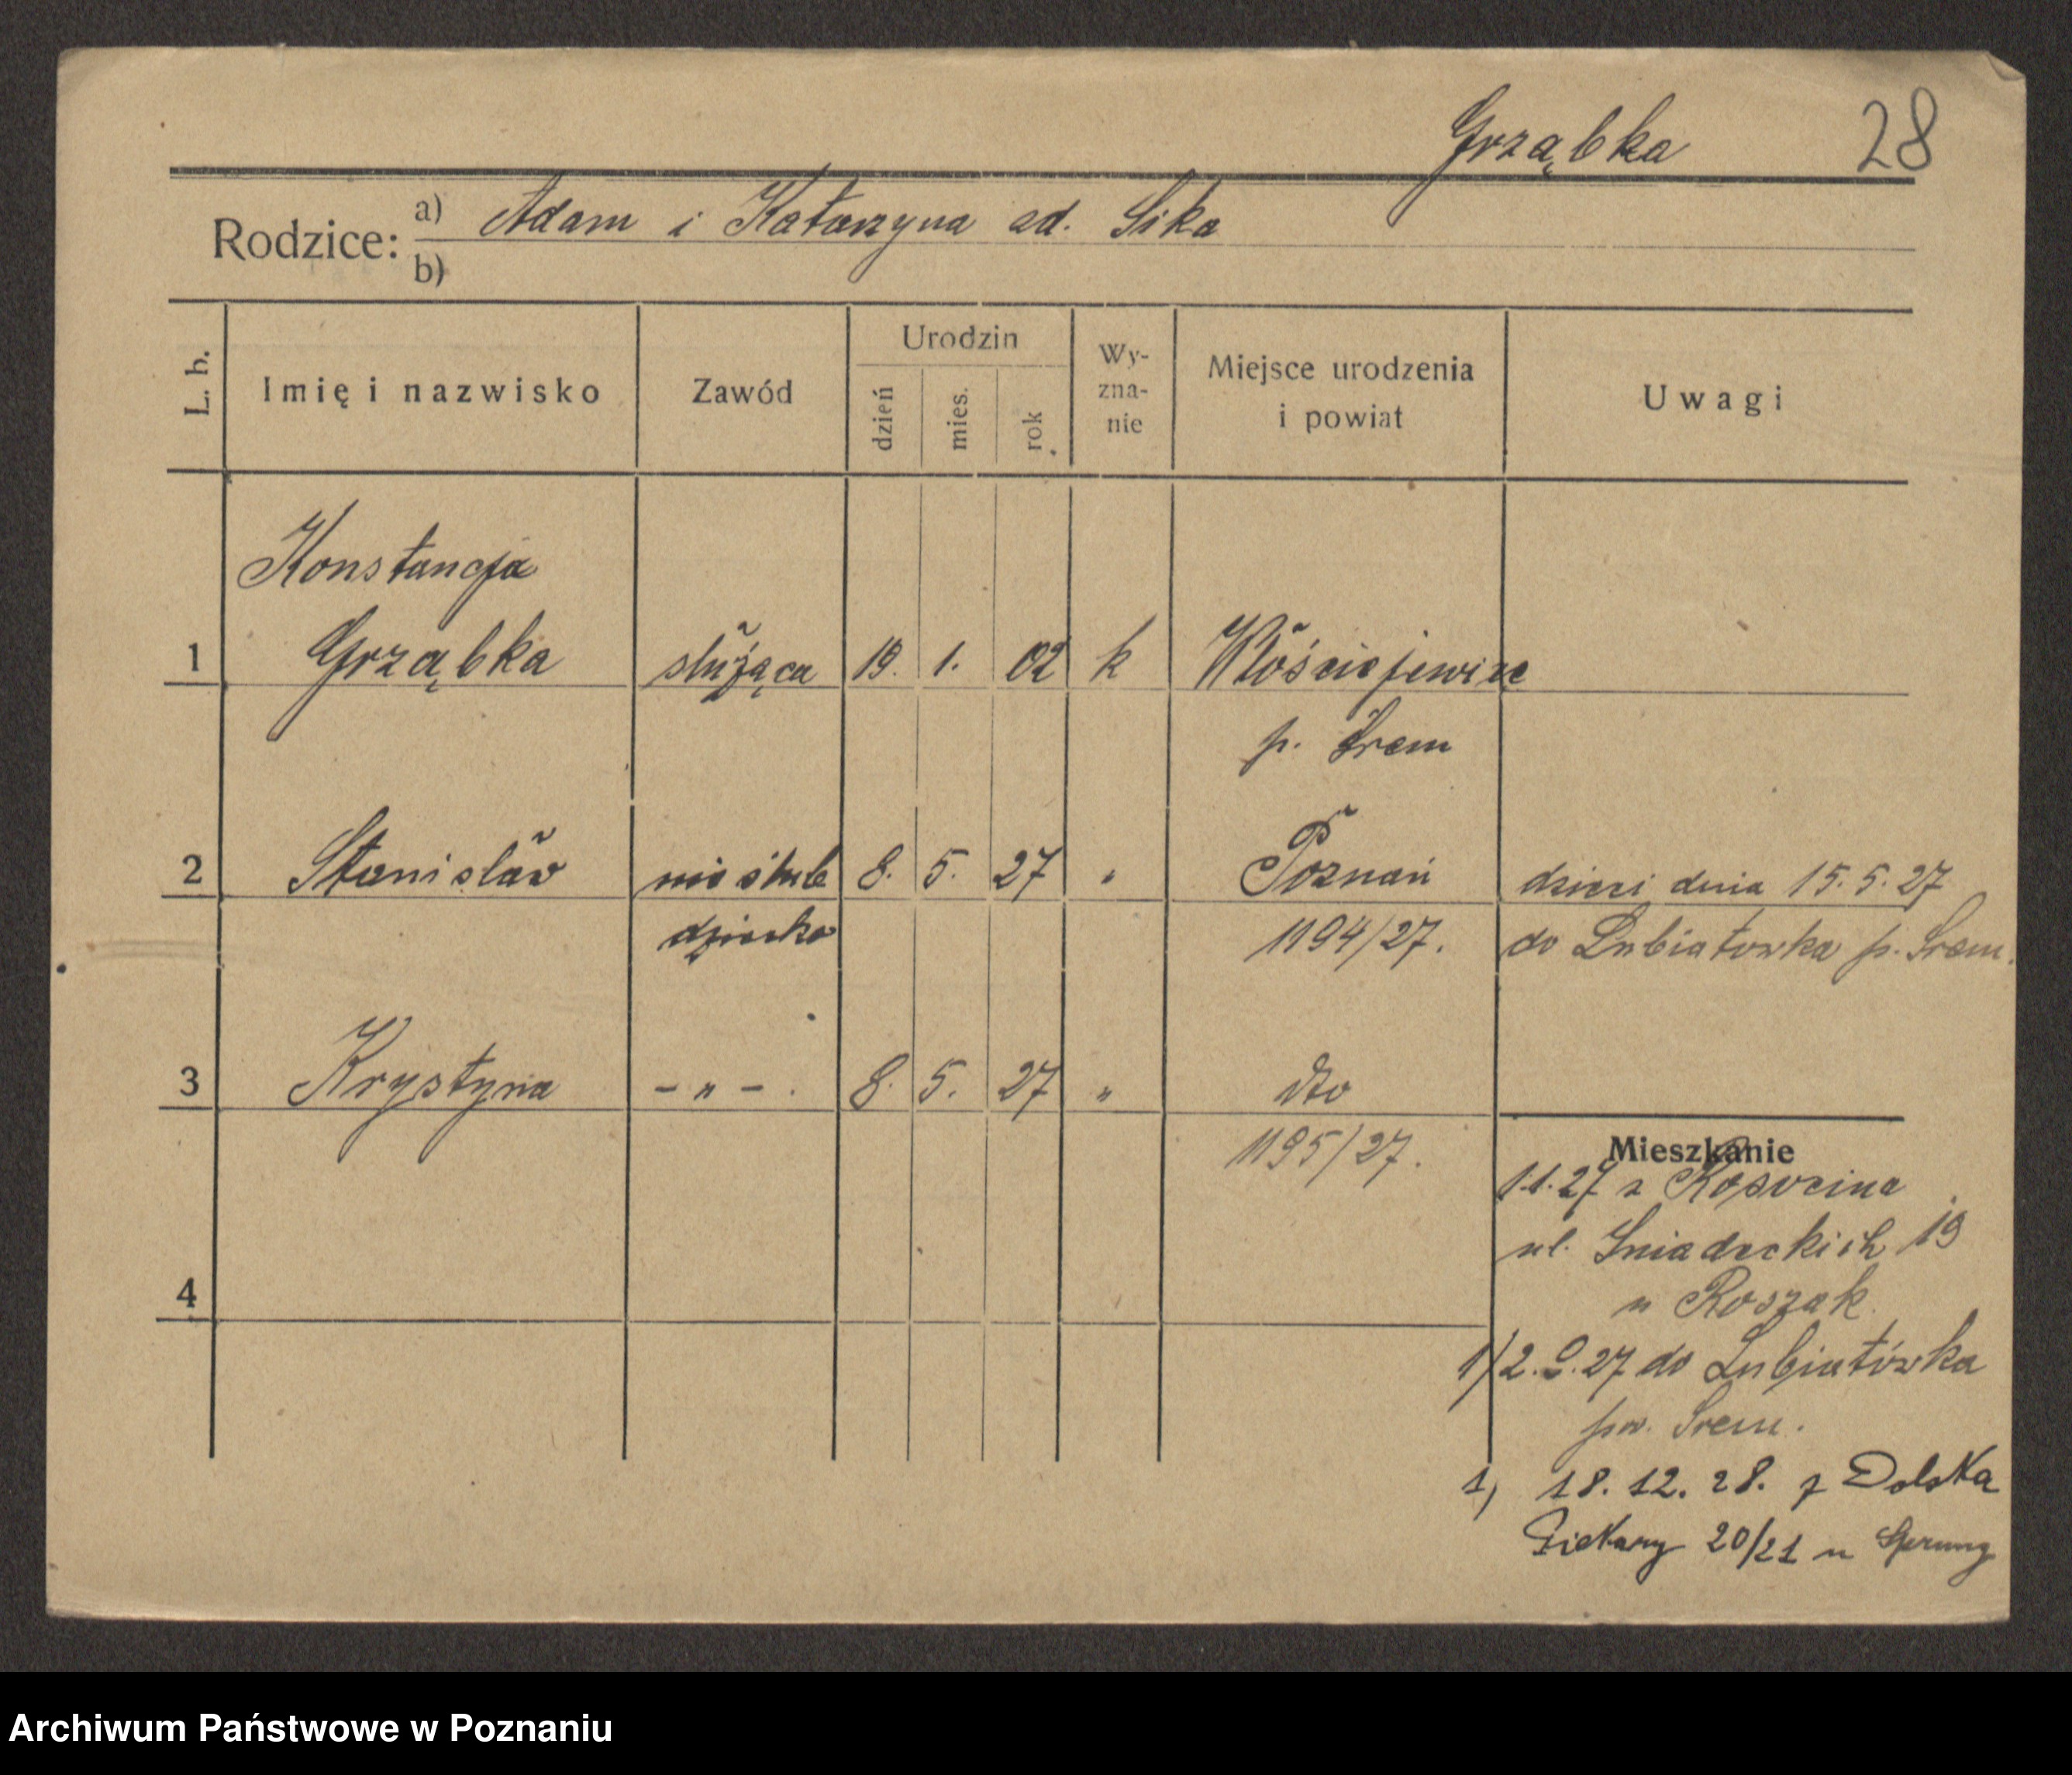 Grząbka 28
Rodzice: a) Adam i Katarzyna ad. Sika
b)
L. b. Imię i nazwisko Zawód Urodzin dzień mies. rok Wy-zna-nie Miejsce urodzenia i powiat Uwagi
Konstancja
1 Grząbka służąca 19. 1. 02 k Włościejewice
p. Śrem
2 Stanisław nieślub 8. 5. 27 " Poznań dzieci dnia 15. 5. 27
dziecko 1194/27. do Lubiatowka p. Śrem.
3 Krystyna - " - . 8. 5. 27 " dto
1195/27.
Mieszkanie
1.1.27 z
ul. Śniadeckich 19
4
u Roszak.
1/2. 27 do Lubiatówka
pow. Śrem.
1, 18. 12. 28. z Dolska
Piekary 20/21 u
Archiwum Państwowe w Poznaniu